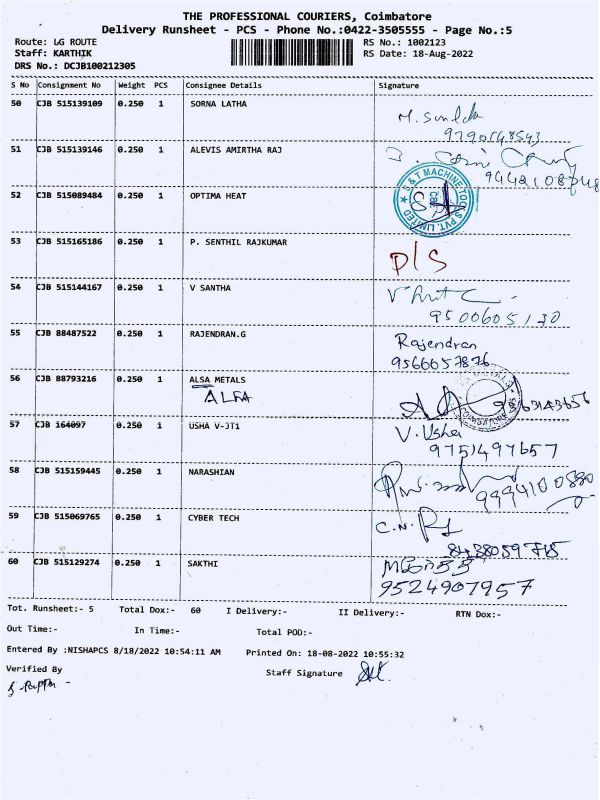 THE PROFESSIONAL COURIERS, Coimbatore
Delivery Runsheet - PCS - Phone No.:0422-3505555 - Page No.:5
Route: LG ROUTE RS No.: 1002123
Staff: KARTHIK RS Date: 18-Aug-2022
DRS No.: DCJB100212305
S No Consignment No Weight PCS Consignee Details Signature
50 CJB 515139109 0.250 1 SORNA LATHA
51 CJB 515139146 0.250 1 ALEVIS AMIRTHA RAJ
52 CJB 515089484 0.250 1 OPTIMA HEAT S&T MACHINE TOOLS PVT. LIMITED
53 CJB 515165186 0.250 1 P. SENTHIL RAJKUMAR P/S
54 CJB 515144167 0.250 1 V SANTHA
9500605130
55 CJB 88487522 0.250 1 RAJENDRAN.G Rajendran
9566057876
56 CJB 88793216 0.250 1 ALSA METALS
ALFA
57 CJB 164097 0.250 1 USHA V-JT1 V. Usha
9751497657
58 CJB 515159445 0.250 1 NARASHIAN
9994100880
59 CJB 515069765 0.250 1 CYBER TECH C.N.
8438059715
60 CJB 515129274 0.250 1 SAKTHI
9524907957
Tot. Runsheet:- 5 Total Dox:- 60 I Delivery:- II Delivery:- RTN Dox:-
Out Time:- In Time:- Total POD:-
Entered By :NISHAPCS 8/18/2022 10:54:11 AM Printed On: 18-08-2022 10:55:32
Verified By Staff Signature